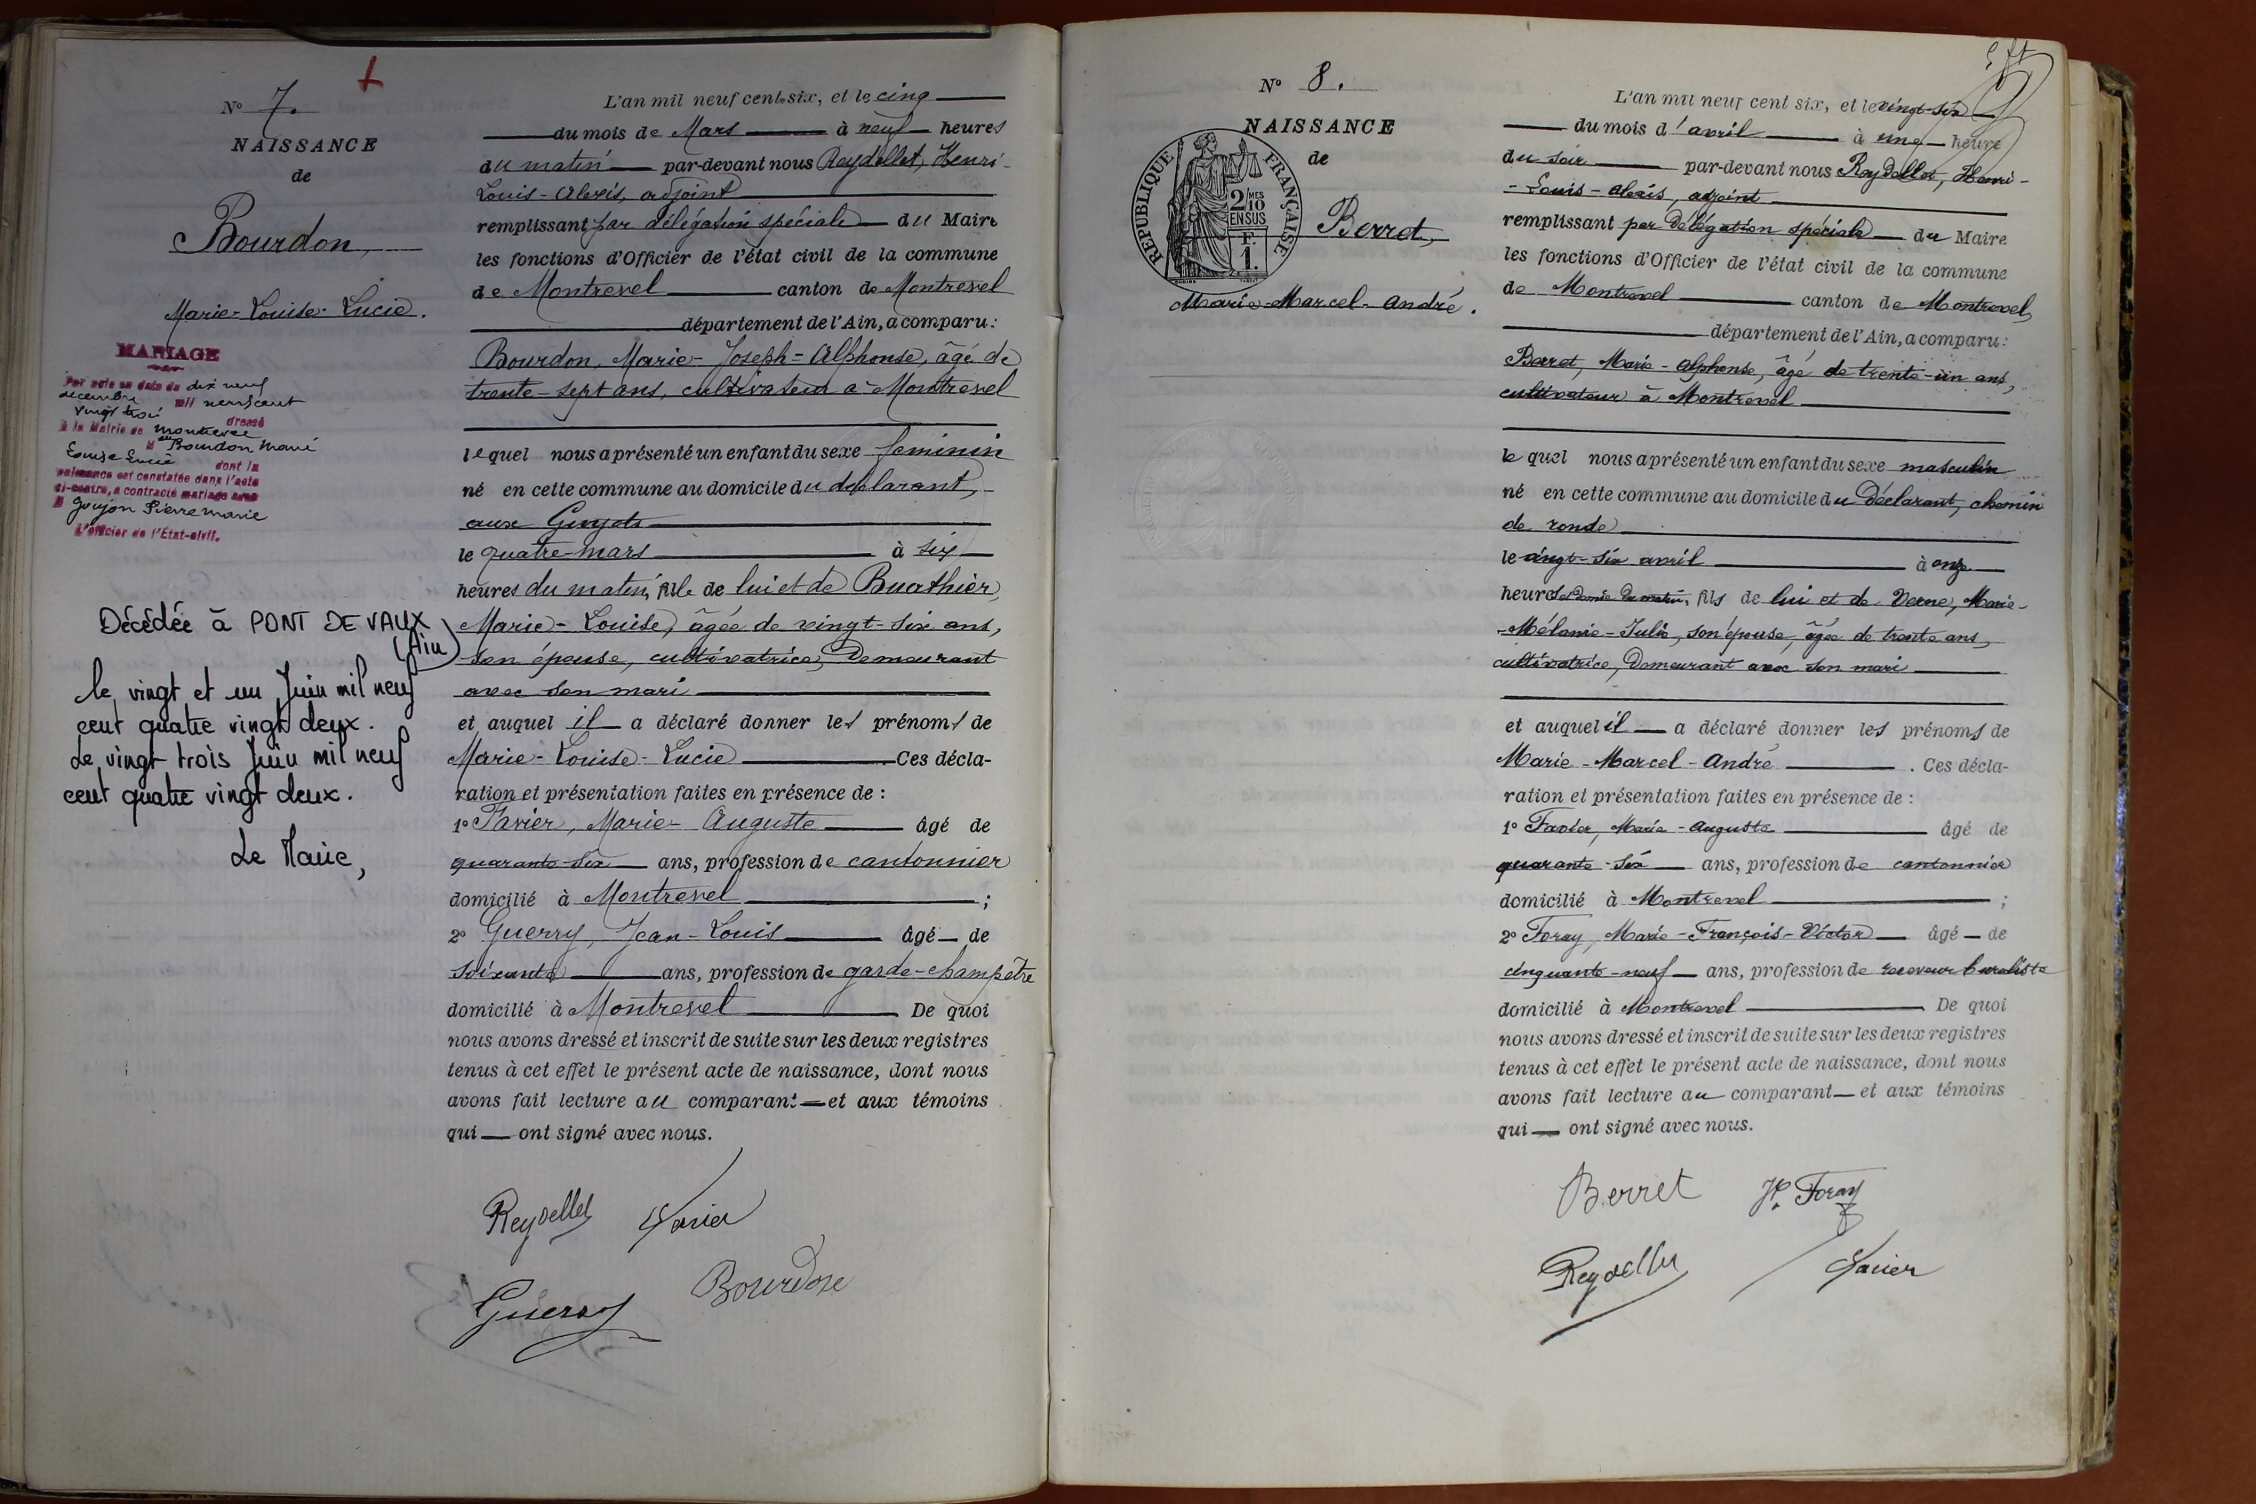 N° 7.
NAISSANCE
de
Bourdon,
Marie-Louise-Lucie.
MARIAGE
Par acte en date du dix neuf
décembre mil neuf cent
vingt trois dressé
à la Mairie de Montrevel
M elle Bourdon Marie
Louise Lucie dont la
naissance est constatée dans l'acte
ci-contre, a contracté mariage avec
M Goujon Pierre Marie
L'officier de l'État-civil.
Décédée à PONT DE VAUX
(Ain)
le vingt et un Juin mil neuf
cent quatre vingt deux.
Le vingt trois Juin mil neuf
cent quatre vingt deux.
Le Maire,
L'an mil neuf cent six, et le cinq
du mois de Mars à neuf heures
du matin par-devant nous Reydellet, Henri-
Louis-Alexis, adjoint
remplissant par délégation spéciale du Maire
les fonctions d'Officier de l'état civil de la commune
de Montrevel canton de Montrevel
département de l'Ain, a comparu:
Bourdon, Marie-Joseph-Alphonse, âgé de
trente-sept ans, cultivateur à Montrevel
lequel nous a présenté un enfant du sexe féminin
né en cette commune au domicile du déclarant,
aux Guyots
le quatre mars à six
heures du matin, fille de lui et de Buathier,
Marie-Louise, âgée de vingt-six ans,
son épouse, cultivatrice, demeurant
avec son mari
et auquel il a déclaré donner les prénoms de
Marie-Louise-Lucie. Ces décla-
ration et présentation faites en présence de :
1° Favier, Marie-Auguste âgé de
quarante-six ans, profession de cantonnier
domicilié à Montrevel ;
2° Guerry, Jean-Louis âgé de
soixante ans, profession de garde-champêtre
domicilié à Montrevel De quoi
nous avons dressé et inscrit de suite sur les deux registres
tenus à cet effet le présent acte de naissance, dont nous
avons fait lecture au comparant et aux témoins
qui ont signé avec nous.
Reydellet Favier
Guerry Bourdon
N° 8.
NAISSANCE
de
REPUBLIQUE FRANÇAISE
2 MES
10
EN SUS
F.
1.
Berret,
Marie-Marcel-André.
L'an mil neuf cent six, et le vingt-six
du mois d'avril à une heure
du soir par-devant nous Reydellet, Henri-
-Louis-Alexis, adjoint
remplissant par délégation spéciale du Maire
les fonctions d'Officier de l'état civil de la commune
de Montrevel canton de Montrevel,
département de l'Ain, a comparu:
Berret, Marie-Alphonse, âgé de trente-un ans,
cultivateur à Montrevel
lequel nous a présenté un enfant du sexe masculin
né en cette commune au domicile du Déclarant, chemin
de ronde
le vingt-six avril à onze
heures et demie du matin, fils de lui et de Verne, Marie-
-Mélanie-Julie, son épouse, âgée de trente ans,
cultivatrice, demeurant avec son mari
et auquel il a déclaré donner les prénoms de
Marie-Marcel-André. Ces décla-
ration et présentation faites en présence de :
1° Favier, Marie-Auguste âgé de
quarante-six ans, profession de cantonnier
domicilié à Montrevel ;
2° Foray, Marie-François-Victor âgé de
cinquante-neuf ans, profession de receveur buraliste
domicilié à Montrevel De quoi
nous avons dressé et inscrit de suite sur les deux registres
tenus à cet effet le présent acte de naissance, dont nous
avons fait lecture au comparant et aux témoins
qui ont signé avec nous.
Berret Foray
Reydellet Favier